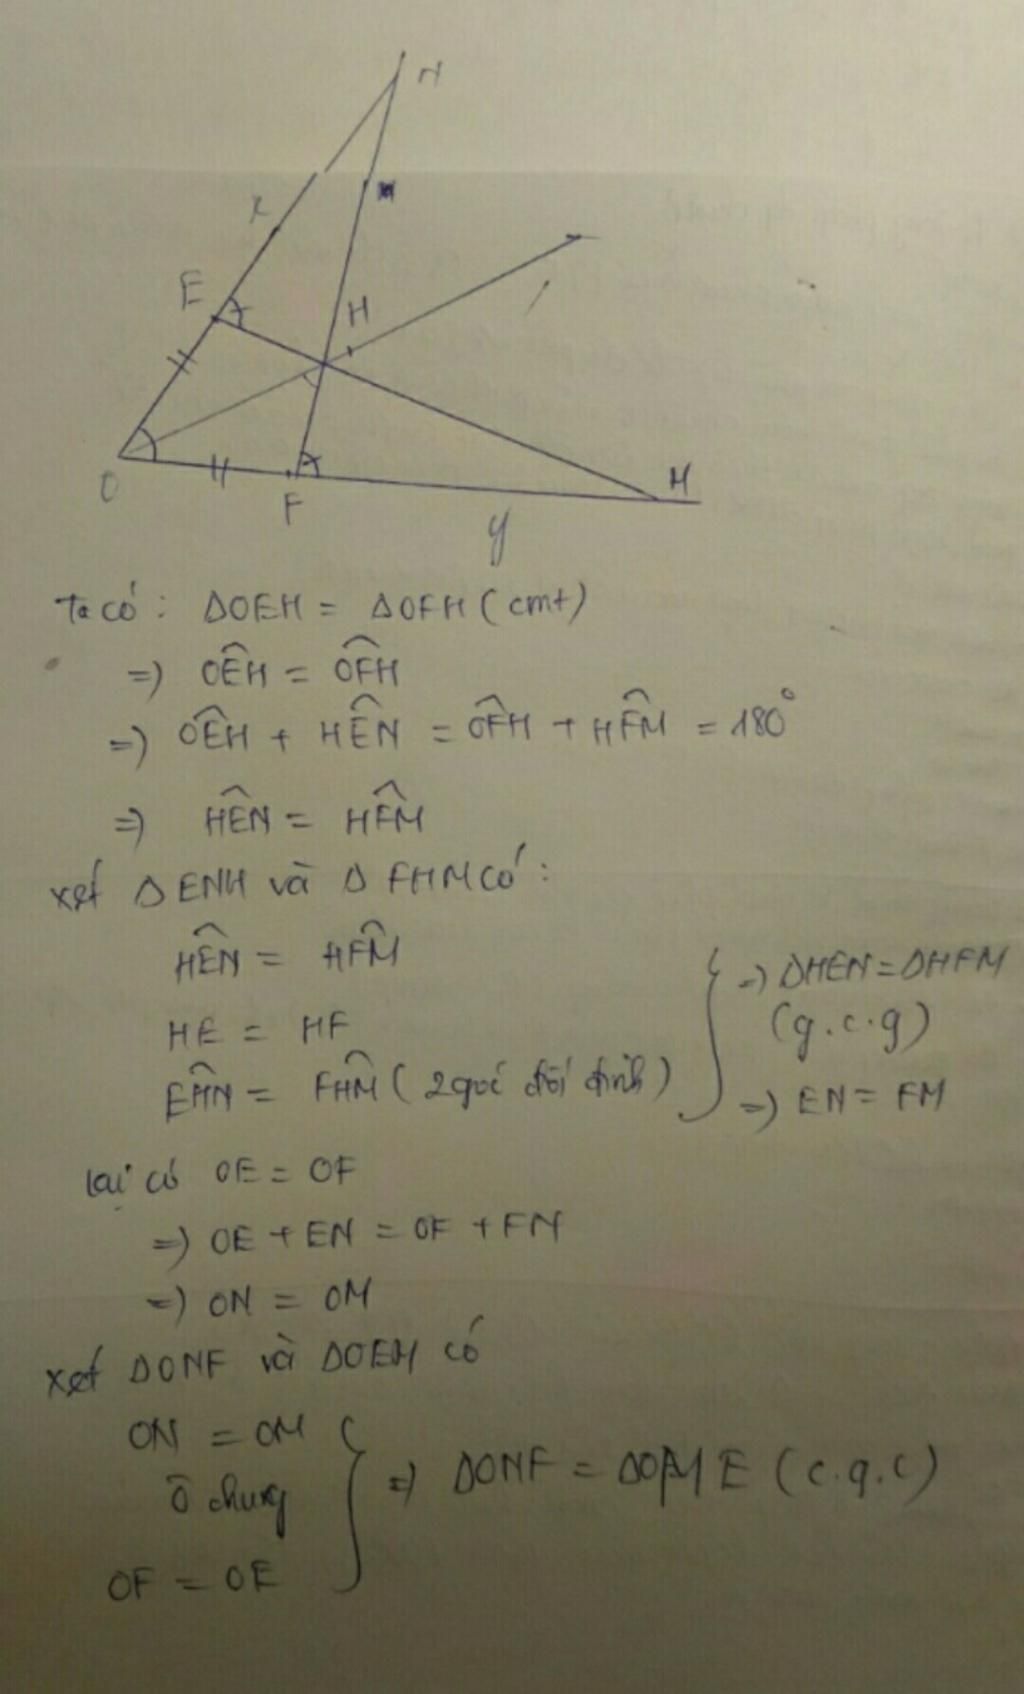 N
x
E
H
O
F
M
y
Ta có: ΔOEH = ΔOFH (cmt)
=) OÊH = OF̂H
=) OÊH + HÊN = OF̂H + HF̂M = 180°
=) HÊN = HF̂M
xét ΔENH và Δ FHM có:
HÊN = HF̂M
HE = HF
EĤN = FĤM (2 góc đối đỉnh)
=) ΔHEN = ΔHFM
(g.c.g)
=) EN = FM
lại có OE = OF
=) OE + EN = OF + FM
=) ON = OM
xét ΔONF và ΔOEM có
ON = OM
Ô chung
OF = OE
=) ΔONF = ΔOME (c.g.c)